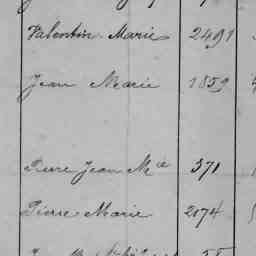 Valentin Marie 2491
Jean Marie 1859
Pierre Jean Mie 371
Pierre Marie 2074